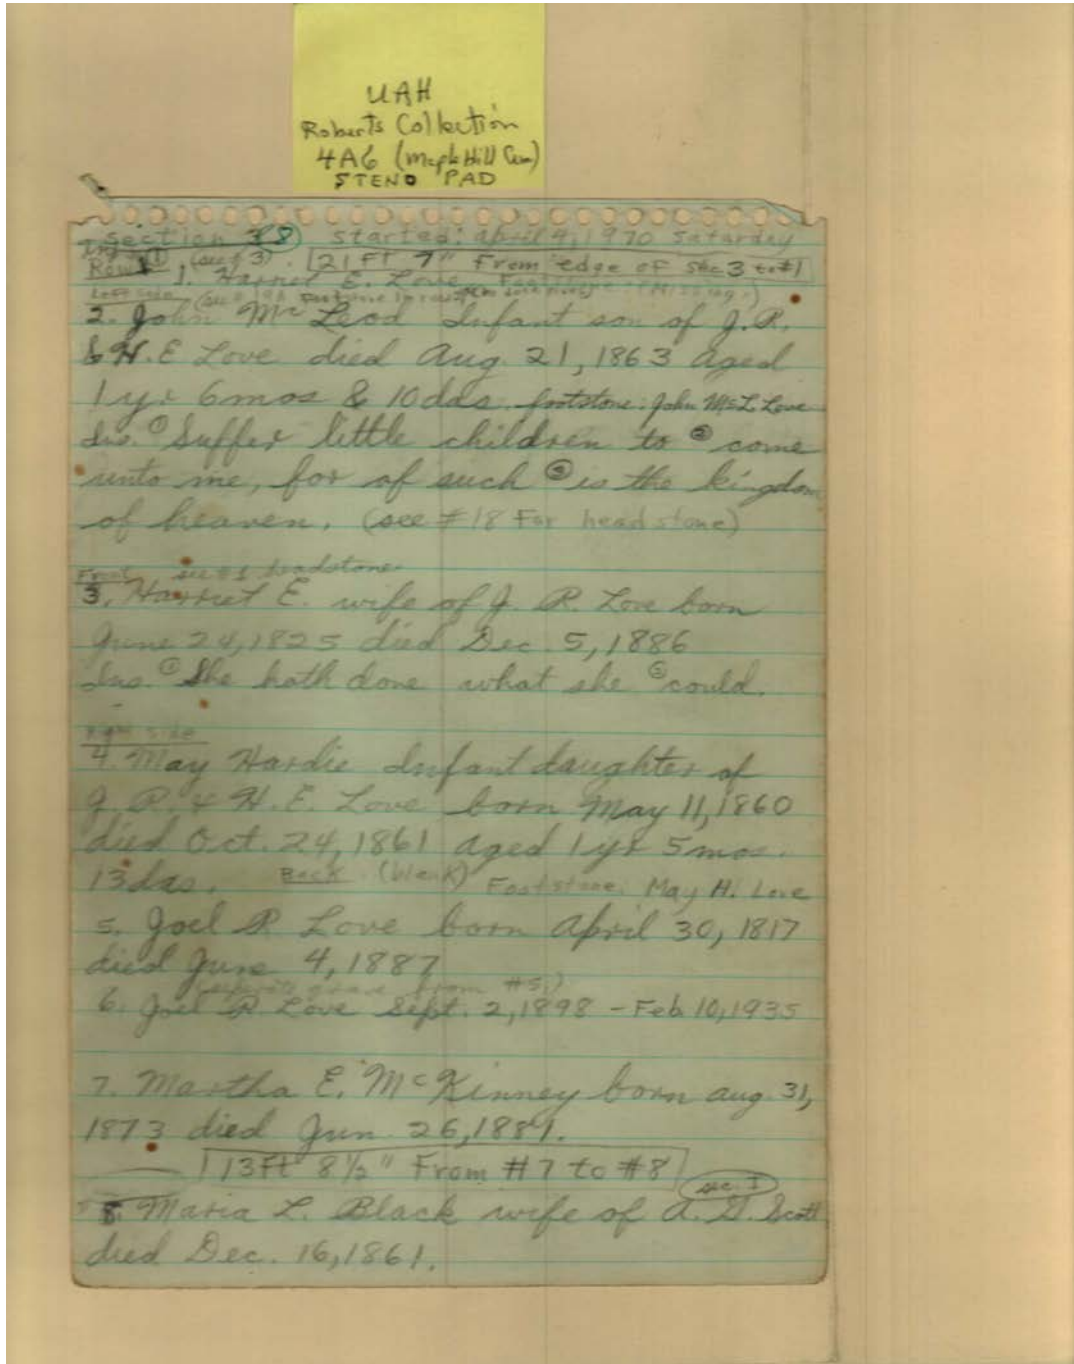 UAH
Roberts Collection
4A6 (Maple Hill Cem)
STENO PAD
Section 38 started: April 4, 1970 Saturday
Row 1 (sec 3) 21 Ft 7" From edge of sec 3 to #1
1. Harriet E. Love Footstone (Missing)
Left side
2. John Mc Leod Infant son of J. R.
& H. E Love died Aug. 21, 1863 aged
1 yr 6 mos & 10 das. footstone: John McL. Love
Ins. ① Suffer little children to ② come
unto me, for of such ③ is the kingdom
of heaven. (see #18 For head stone)
Front see #1 headstone
3. Harriet E. wife of J. R. Love born
June 24, 1825 died Dec. 5, 1886
Ins. ① She hath done what she ② could.
right side
4. May Hardie Infant daughter of
J R. & H. E. Love born May 11, 1860
died Oct. 24, 1861 aged 1 yr 5 mos.
13 das. Back (blank) Footstone: May H. Love
5. Joel R Love born April 30, 1817
died June 4, 1887
(separate grave from #5.)
6. Joel R Love Sept. 2, 1898 - Feb 10, 1935
7. Martha E. McKinney born Aug. 31,
1873 died Jun 26, 1889.
13 Ft 8 1/2" From #7 to #8
sec. I
8. Maria L. Black wife of A. D. Scott
died Dec. 16, 1861.